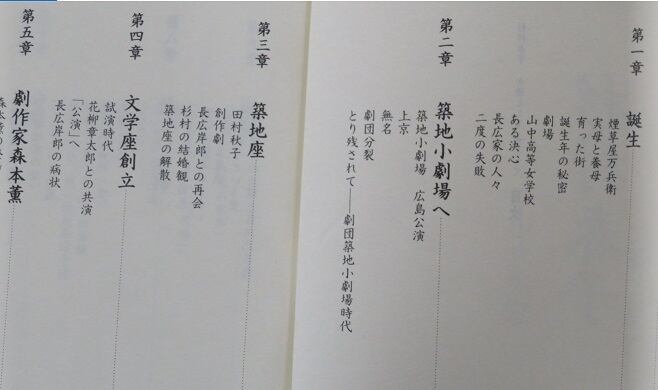 第一章　誕生
煙草屋万兵衛
実母と養母
育った街
誕生年の秘密
劇場
山中高等女学校
ある決心
長広家の人々
二度の失敗
第二章　築地小劇場へ
築地小劇場　広島公演
上京
無名
劇団分裂
とり残されて――劇団築地小劇場時代
第三章　築地座
田村秋子
創作劇
長広岸郎との再会
杉村の結婚観
築地座の解散
第四章　文学座創立
試演時代
花柳章太郎との共演
「公演」へ
長広岸郎の病状
第五章　劇作家森本薫